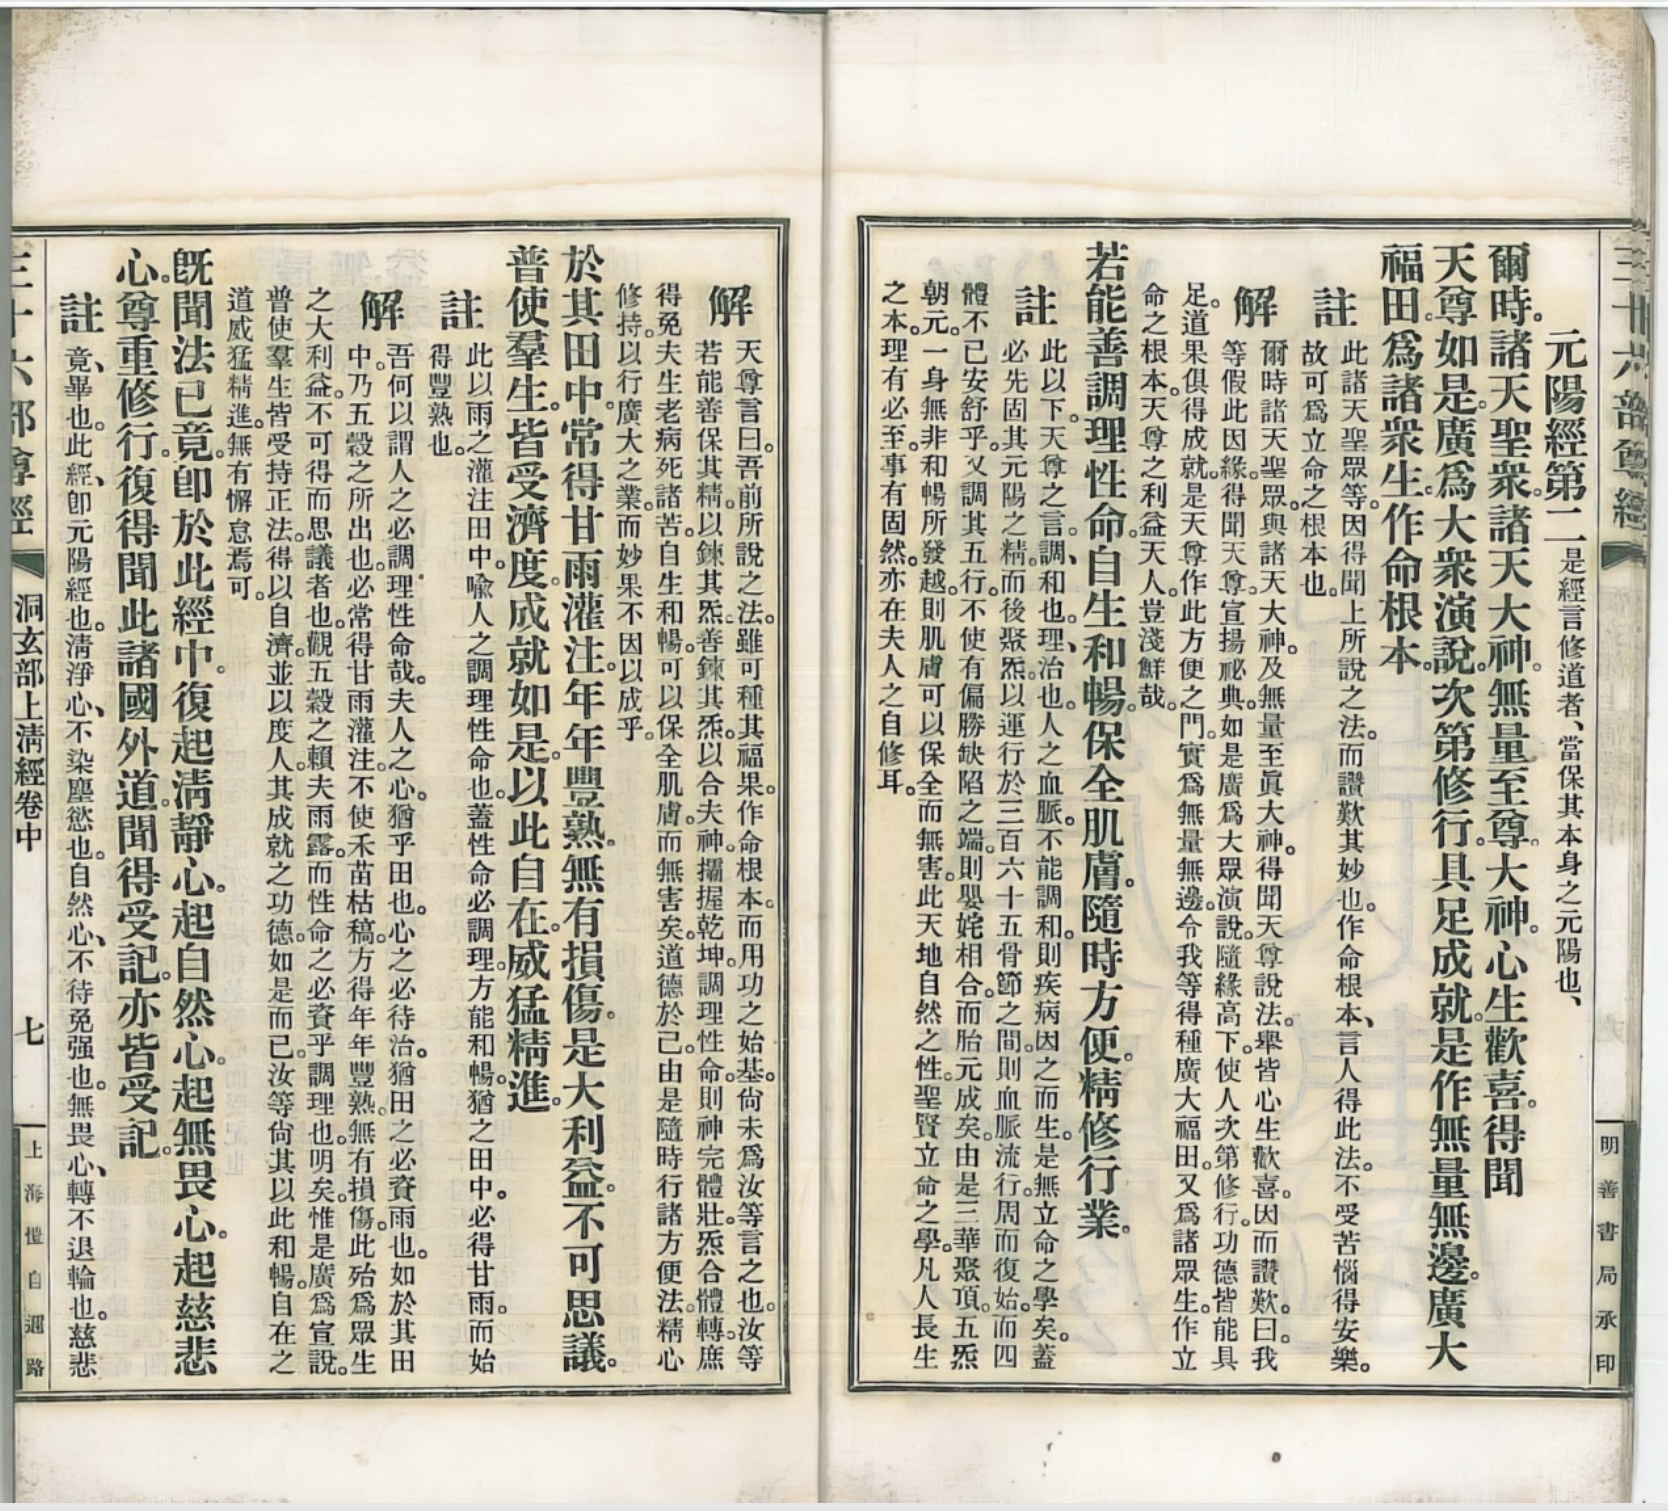 三十六部尊經
明善書局承印
元陽經第二是經言修道者、當保其本身之元陽也、
爾時。諸天聖衆。諸天大神。無量至尊大神。心生歡喜。得聞
天尊如是。廣爲大衆演說。次第修行。具足成就。是作無量無邊。廣大
福田。爲諸衆生。作命根本。
註
此諸天聖眾等。因得聞上所說之法。而讚歎其妙也。作命根本、言人得此法。不受苦惱得安樂。
故可爲立命之根本也。
解
爾時諸天聖眾。與諸天大神。及無量至眞大神。得聞天尊說法。舉皆心生歡喜。因而讚歎曰。我
等假此因緣。得聞天尊。宣揚祕典。如是廣爲大眾演說。隨緣高下。使人次第修行。功德皆能具
足。道果俱得成就。是天尊作此方便之門。實爲無量無邊。令我等得種廣大福田。又爲諸眾生。作立
命之根本。天尊之利益天人。豈淺鮮哉。
若能善調理性命。自生和暢。保全肌膚。隨時方便。精修行業。
註
此以下。天尊之言。調、和也。理、治也。人之血脈。不能調和。則疾病因之而生。是無立命之學矣。蓋
必先固其元陽之精。而後聚炁。以運行於三百六十五骨節之間。則血脈流行。周而復始。而四
體不已安舒乎。又調其五行。不使有偏勝缺陷之端。則嬰姹相合。而胎元成矣。由是三華聚頂。五炁
朝元。一身無非和暢所發越。則肌膚可以保全而無害。此天地自然之性。聖賢立命之學。凡人長生
之本。理有必至。事有固然。亦在夫人之自修耳。
解
天尊言曰。吾前所說之法。雖可種其福果。作命根本。而用功之始基。尙未爲汝等言之也。汝等
若能善保其精。以鍊其炁。善鍊其炁。以合夫神。攝握乾坤。調理性命。則神完體壯。炁合體轉。庶
得免夫生老病死諸苦。自生和暢。可以保全肌膚。而無害矣。道德於己。由是隨時行諸方便法。精心
修持。以行廣大之業。而妙果不因以成乎。
於其田中。常得甘雨灌注。年年豐熟。無有損傷。是大利益。不可思議。
普使羣生。皆受濟度。成就如是。以此自在。威猛精進。
註
此以雨之灌注田中。喩人之調理性命也。蓋性命必調理。方能和暢。猶之田中。必得甘雨。而始
得豐熟也。
解
吾何以謂人之必調理性命哉。夫人之心。猶乎田也。心之必待治。猶田之必資雨也。如於其田
中。乃五穀之所出也。必常得甘雨灌注。不使禾苗枯稿。方得年年豐熟。無有損傷。此殆爲眾生
之大利益。不可得而思議者也。觀五穀之賴夫雨露。而性命之必資乎調理也。明矣。惟是廣爲宣說。
普使羣生皆受持正法。得以自濟。並以度人。其成就之功德。如是而已。汝等尙其以此和暢。自在之
道。威猛精進。無有懈怠焉可。
旣聞法已竟。卽於此經中。復起清靜心。起自然心。起無畏心。起慈悲
心。尊重修行。復得聞此諸國外道。聞得受記。亦皆受記。
註
竟、畢也。此經、卽元陽經也。清淨心、不染塵慾也。自然心、不待免强也。無畏心、轉不退輪也。慈悲
三十六部尊經
洞玄部上清經卷中
七
上海愷自邇路